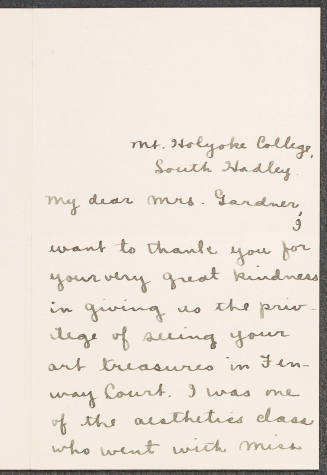 Mt. Holyoke College,
South Hadley.
My dear Mrs. Gardner,
I
want to thank you for
your very great kindness
in giving us the priv-
ilege of seeing your
art treasures in Fen-
way Court. I was one
of the aesthetics class
who went with Miss